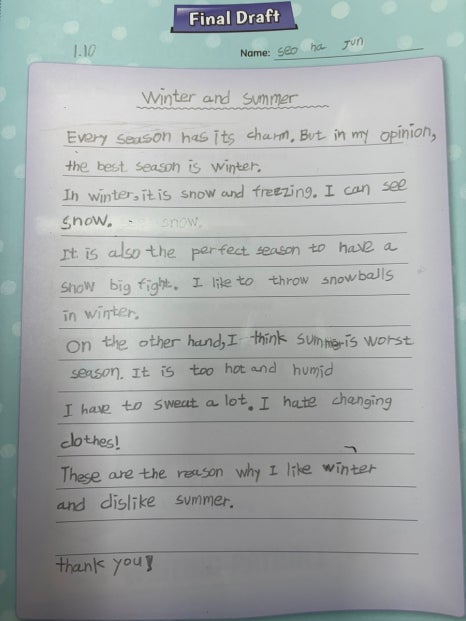 Final Draft
1.10
Name: seo ha Jun
Winter and summer
Every season has its charm. But in my opinion,
the best season is winter.
In winter, it is snow and freezing. I can see
snow. see snow.
It is also the perfect season to have a
snow big fight. I like to throw snowballs
in winter.
On the other hand, I think summer is worst
season. It is too hot and humid
I have to sweat a lot. I hate changing
clothes!
These are the reason why I like winter
and dislike summer.
thank you!